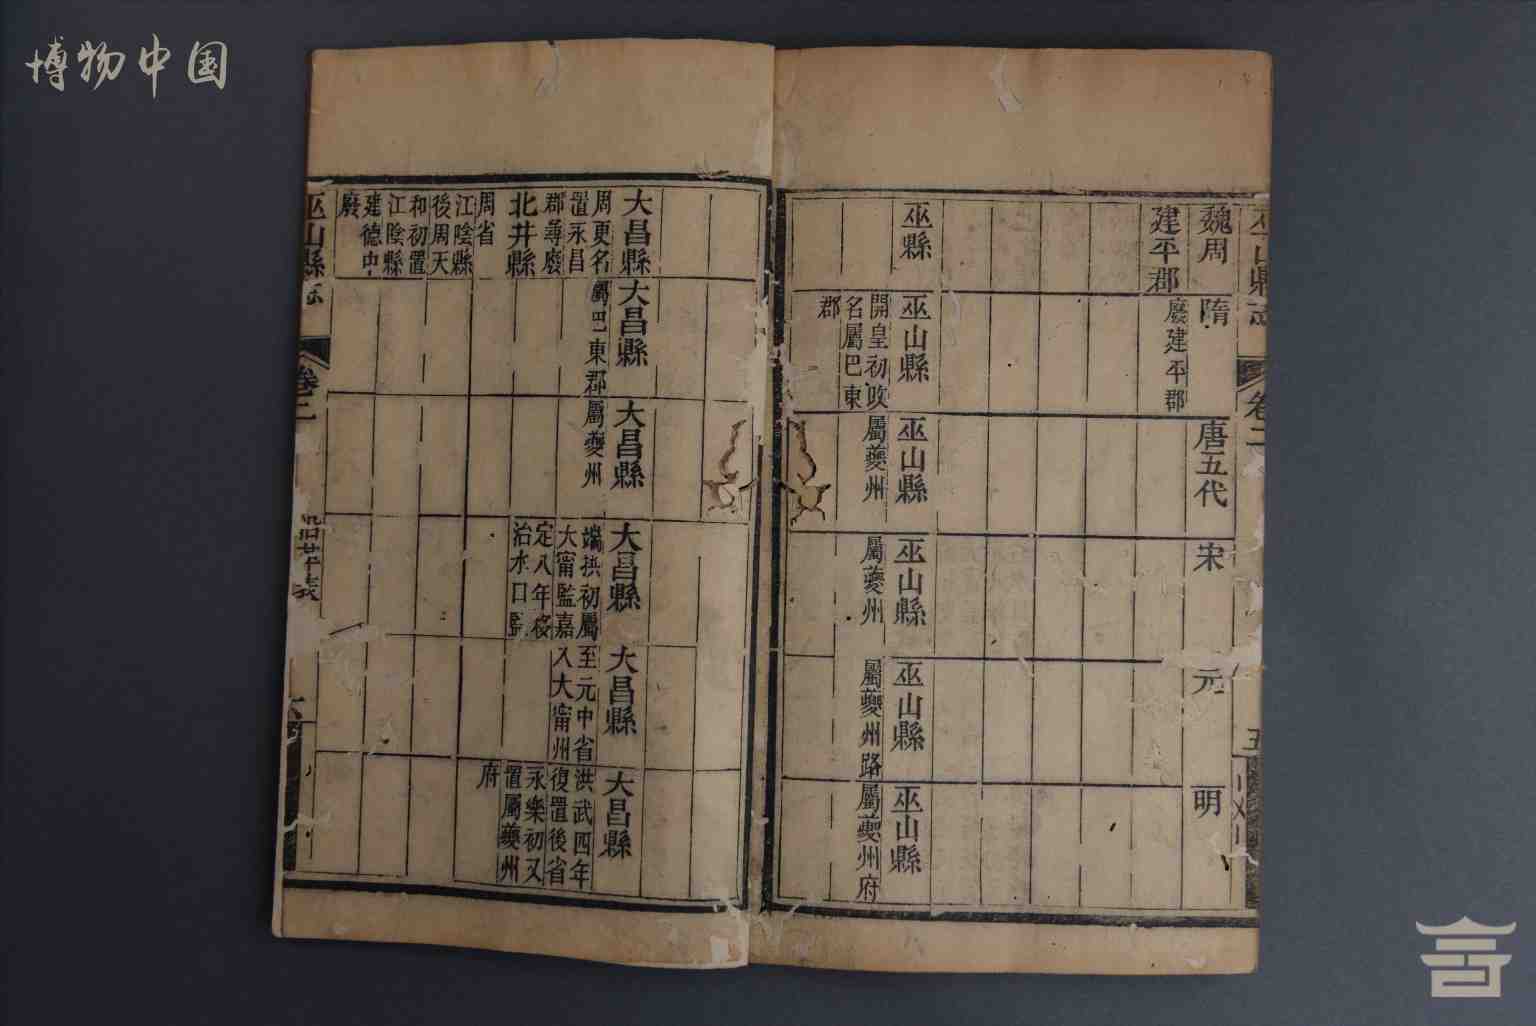 博物中国
巫山縣志
卷二
五
魏周
隋
唐五代
宋
元
明
建平郡
廢建平郡
巫縣
巫山縣
開皇初改
名屬巴東
郡
巫山縣
屬夔州
巫山縣
屬夔州
巫山縣
屬夔州路
巫山縣
屬夔州府
大昌縣
周更名
置永昌
郡尋廢
北井縣
周省
江陰縣
後周天
和初置
江陰縣
建德中
廢
大昌縣
屬巴東郡
大昌縣
屬夔州
大昌縣
端拱初屬
大甯監嘉
定八年移
治水口監
大昌縣
至元中省
入大甯州
大昌縣
洪武四年
復置後省
永樂初又
置屬夔州
府
巫山縣志
卷二
六